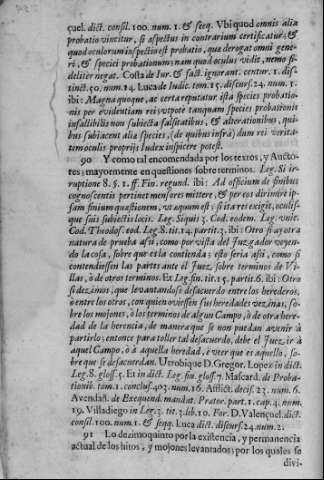 çuel. dict. consil. 100. num. 1. & seq. Vbi quod omnis alia
probatio vincitur, si aspectus in contrarium certificatur; &
quod oculorum inspectio est probatio, que derogat omni gene-
ri, & speciei probationum; nam quod oculus vidit, nemo fi-
deliter negat. Costa de Iur. & fact. ignorant. centur. 1. dis-
tinct. 50. num. 14. Luca de Iudic. tom. 15. discurs. 24. num. 5.
ibi: Magna quoque, ac certa reputatur ista species probatio-
nis per evidentiam rei; utpote tamquam species probationis
infallibilis non subiecta falsitatibus, & alterationibus, qui-
bus subiacent alia species, (de quibus infrà) dum rei verita-
tem oculis proprijs Iudex inspicere potest.
90 Y como tal encomendada por los textos, y Aucto-
res; mayormente en questiones sobre terminos. Leg. Si ir-
ruptione 8. §. 1. ff. Fin. regund. ibi: Ad officium de finibus
cognoscentis pertinet mensores mittere, & per eos dirimere ip-
sam finium quæstionem, ut æquum est; si ita res exigit, oculis-
que suis subiectis locis. Leg. Siquis 3. Cod. eodem. Leg. unic.
Cod. Theodos. eod. Leg. 8. tit. 14. partit. 3. ibi: Otro si ay otra
natura de prueba assi, como por vista del Juzgador voyen-
do la cosa, sobre que es la contienda; esto seria assi, como si
contendiessen las partes ante el Juez, sobre terminos de Vi-
llas, ò de otros terminos. Et Leg. fin. tit. 15. partit. 6. ibi: Otro
si dezimos, que levantandose desacuerdo entre los herederos,
ò entre los otros, con quien oviessen sus heredades vezinas, so-
bre los mojones, ò los terminos de algun Campo, ò de otra here-
dad de la herencia, de manera que se non puedan avenir à
partirlo; entonce para toller tal desacuerdo, debe el Juez ir à
aquel Campo, ò à aquella heredad, è veer que es aquello, so-
bre que se desacuerdan. Utrobique D. Gregor. Lopez in dict.
Leg. 8. gloss. 5. Et in dict. Leg. fin. gloss. 7. Mascard. de Proba-
tionib. tom. 1. conclus. 403. num. 16. Afflict. decis. 23. num. 6.
Avendañ. de Exequend. mandat. Prator. part. 1. cap. 4. num.
19. Villadiego in Leg. 3. tit. 3. lib. 10. For. D. Valençuel. dict.
consil. 100. num. 1. & seqq. Luca dict. discurs. 24. num. 2.
91 Lo dezimoquinto por la existencia, y permanencia
actual de los hitos, y mojones levantados; por los quales se
divi-